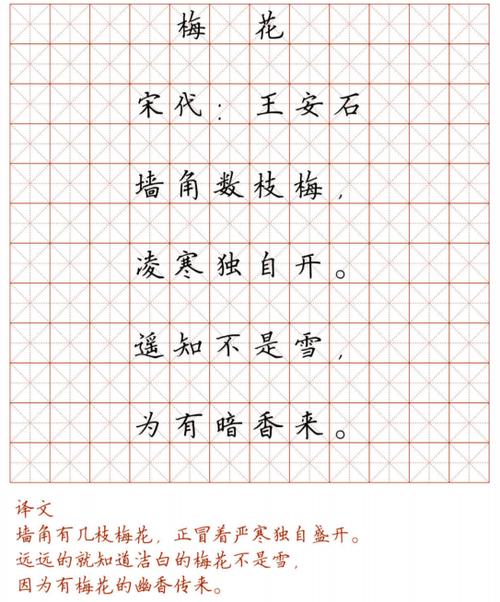 梅花
宋代：王安石
墙角数枝梅，
凌寒独自开。
遥知不是雪，
为有暗香来。
译文
墙角有几枝梅花，正冒着严寒独自盛开。
远远的就知道洁白的梅花不是雪，
因为有梅花的幽香传来。